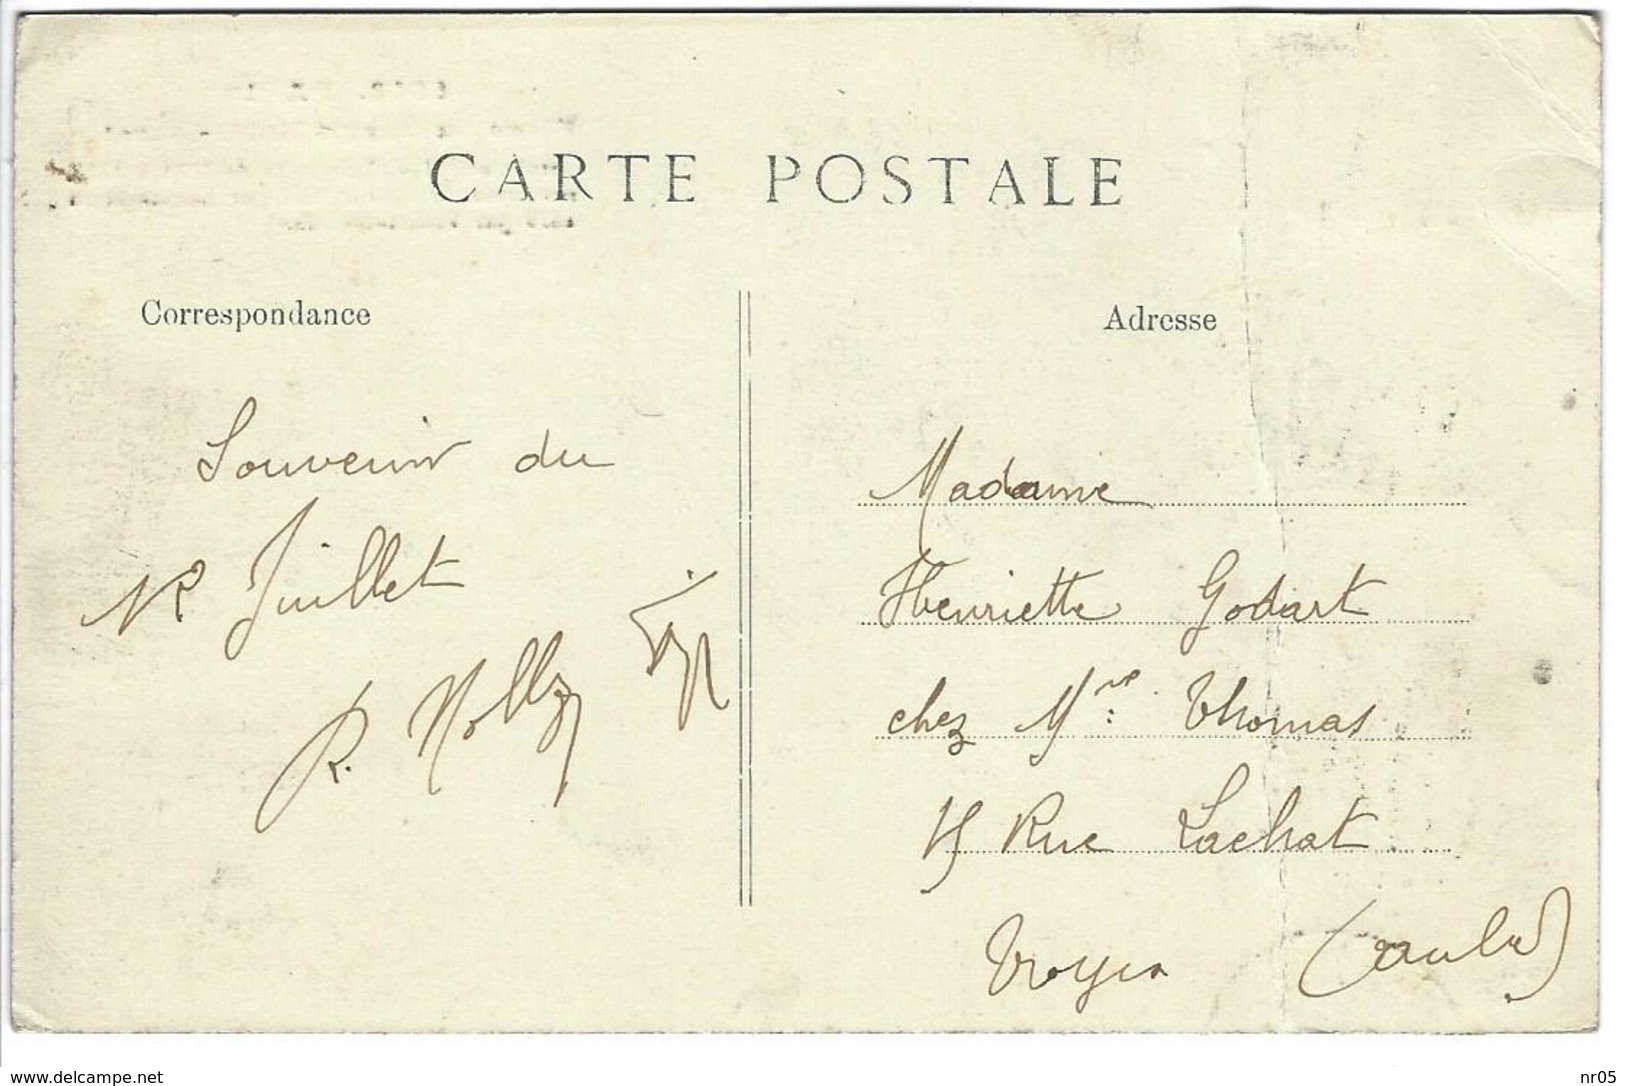 CARTE POSTALE
Correspondance
Adresse
Souvenir du
Juillet
R.
Madame
Henriette Godart
chez Mme Thomas
15 Rue Lachat
Troyes (aube)
www.delcampe.net
nr05